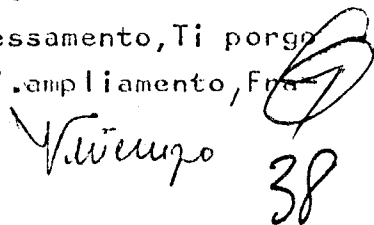 essamento,Ti porgo
.ampliamento,Fra-
38